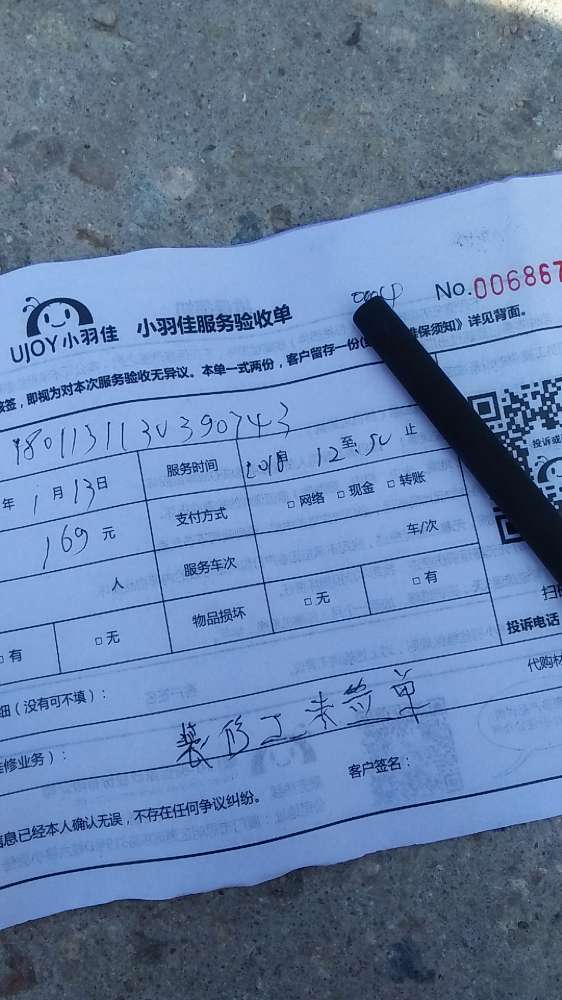 UJOY小羽佳 小羽佳服务验收单 No.00686
核签，即视为对本次服务验收无异议。本单一式两份，客户留存一份 维保须知》详见背面。
年 1 月 13 日 服务时间 至 止
169 元 支付方式 □ 网络 □ 现金 □ 转账
投诉或
人 服务车次 车/次
□ 有 □ 无 物品损坏 □ 无 □ 有
投诉电话
细（没有可不填）： 代购材
装修工未签单
修业务）：
客户签名：
信息已经本人确认无误，不存在任何争议纠纷。